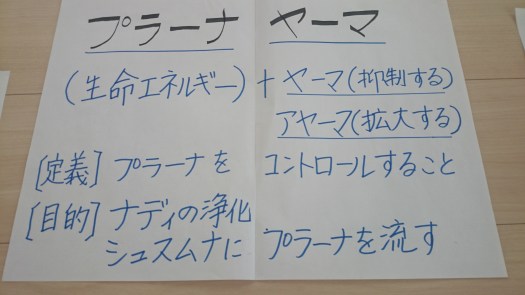 プラーナ ヤーマ
(生命エネルギー) + ヤーマ(抑制する)
アヤーマ(拡大する)
[定義] プラーナを コントロールすること
[目的] ナディの浄化
シュスムナに プラーナを流す